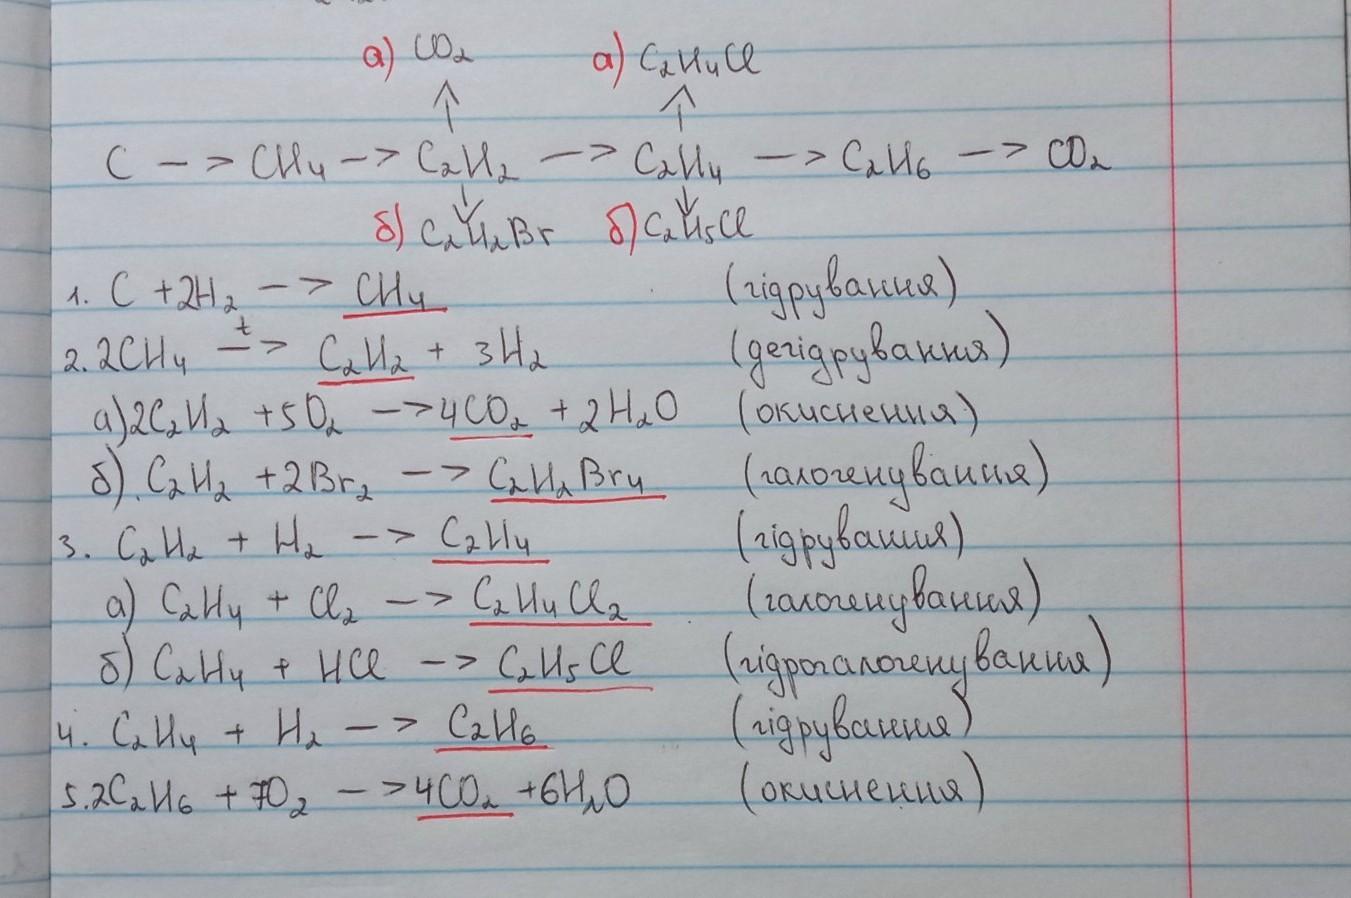 а) CO₂ а) C₂H₄Cl
↑ ↑
C –> CH₄ –> C₂H₂ –> C₂H₄ –> C₂H₆ –> CO₂
↓ ↓
б) C₂H₂Br б) C₂H₅Cl
1. C + 2H₂ –> CH₄ (гідрування)
2. 2CH₄ –t–> C₂H₂ + 3H₂ (дегідрування)
а) 2C₂H₂ + 5O₂ –> 4CO₂ + 2H₂O (окиснення)
б) C₂H₂ + 2Br₂ –> C₂H₂Br₄ (галогенування)
3. C₂H₂ + H₂ –> C₂H₄ (гідрування)
а) C₂H₄ + Cl₂ –> C₂H₄Cl₂ (галогенування)
б) C₂H₄ + HCl –> C₂H₅Cl (гідрогалогенування)
4. C₂H₄ + H₂ –> C₂H₆ (гідрування)
5. 2C₂H₆ + 7O₂ –> 4CO₂ + 6H₂O (окиснення)